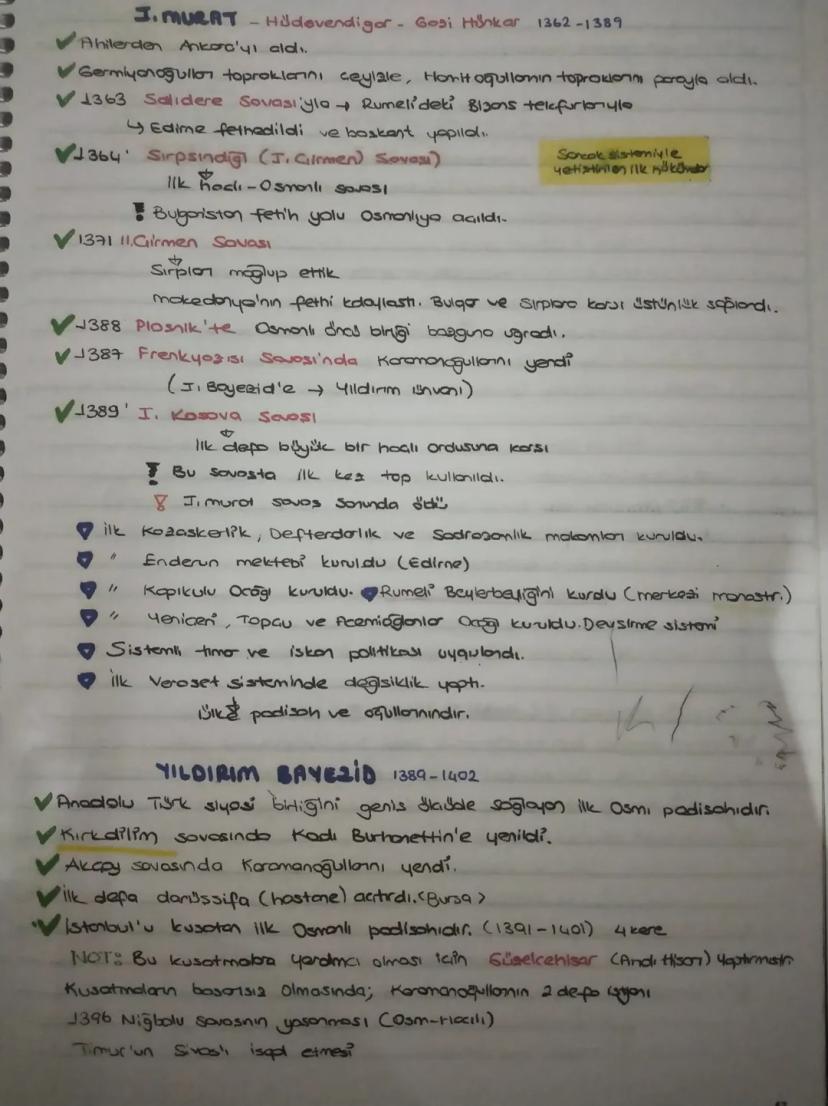 I. MURAT - Hüdavendigar - Gazi Hünkar 1362-1389
Ahilerden Ankara'yı aldı.
Germiyanoğulları topraklarını çeyizle, Hamitoğullarının topraklarını parayla aldı.
1363 Sazlıdere Savaşı'yla → Rumeli'deki Bizans tekfurlarıyla
↳ Edirne fethedildi ve başkent yapıldı.
1364' Sırpsındığı (I. Çirmen) Savaşı
Sancak sistemiyle
yetiştirilen ilk hükümdar
İlk haçlı-Osmanlı savaşı
! Bulgaristan fetih yolu Osmanlıya açıldı.
1371 II. Çirmen Savaşı
Sırpları mağlup ettik
Makedonya'nın fethi kolaylaştı. Bulgar ve Sırplara karşı üstünlük sağlandı.
1388 Ploşnik'te Osmanlı öncü birliği bozguna uğradı.
1387 Frenkyazısı Savaşı'nda Karamanoğullarını yendi
(I. Bayezid'e → Yıldırım ünvanı)
1389' I. Kosova Savaşı
İlk defa büyük bir haçlı ordusuna karşı
! Bu savaşta ilk kez top kullanıldı.
I. murat savaş sonunda öldü
İlk Kazaskerlik, Defterdarlık ve Sadrazamlık makamları kuruldu.
" Enderun mektebi kuruldu (Edirne)
" Kapıkulu Ocağı kuruldu. Rumeli Beylerbeyliğini kurdu (merkezi manastır.)
" Yeniçeri, Topçu ve Acemioğlanlar Ocağı kuruldu. Devşirme sistemi
Sistemli tımar ve iskan politikası uygulandı.
İlk Veraset sisteminde değişiklik yaptı.
Ülke padişah ve oğullarınındır.
YILDIRIM BAYEZİD 1389-1402
Anadolu Türk siyasi birliğini geniş ölçüde sağlayan ilk Osmı padişahıdır.
Kırkdilim savaşında Kadı Burhanettin'e yenildi.
Akçay savaşında Karamanoğullarını yendi.
İlk defa darüşşifa (hastane) açtırdı. <Bursa>
İstanbul'u kuşatan ilk Osmanlı padişahıdır. (1391-1401) 4 kere
NOT: Bu kuşatmalara yardımcı olması için Güzelcehisar (Andl Hisarı) Yaptırmıştır
Kuşatmaların başarısız olmasında; Karamanoğullarının 2 defa isyanı
1396 Niğbolu savaşının yaşanması (Osm-Haçlı)
Timur'un Sivas'ı işgal etmesi